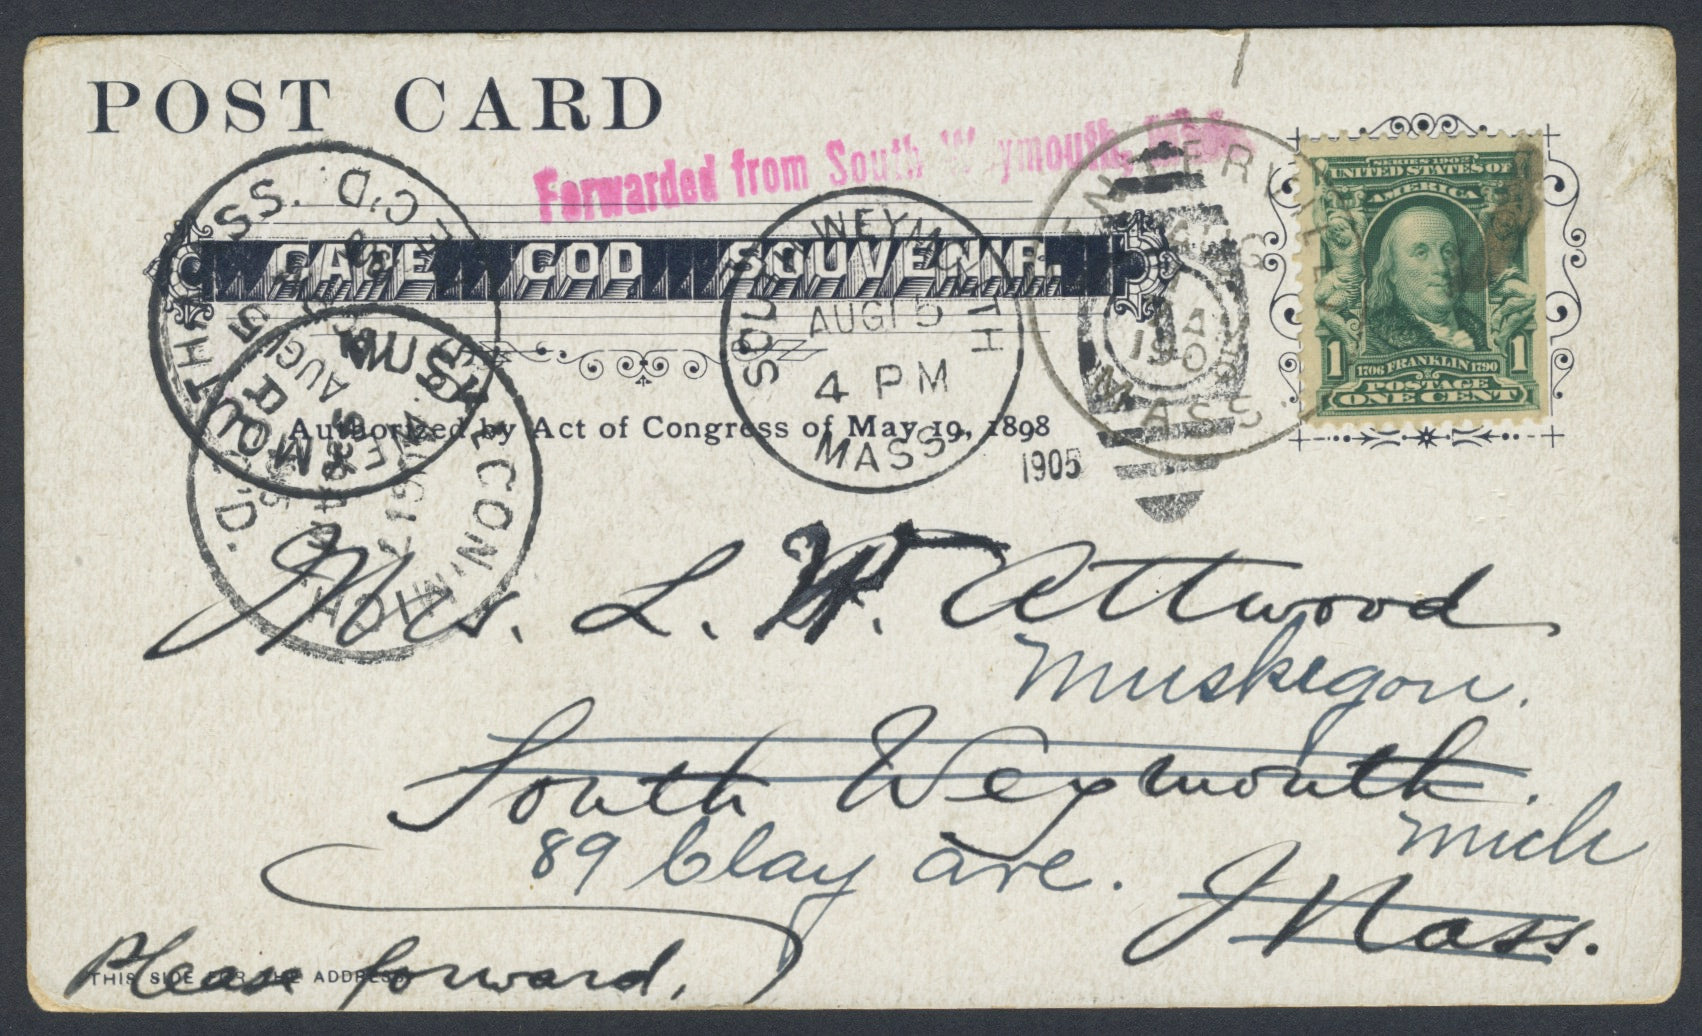 POST CARD
Forwarded from South Weymouth, Mass.
CAPE COD SOUVENIR.
Authorized by Act of Congress of May 19, 1898
SOUTH WEYMOUTH
AUG 15
4 PM
MASS.
1905
CENTERVILLE
AUG
MASS.
SERIES 1902
UNITED STATES OF
AMERICA
1 1706 FRANKLIN 1790 1
POSTAGE
ONE CENT
REC'D.
MUSKEGON, MICH.
AUG 17
REC'D.
Mrs. L. W. Attwood
Muskegon.
South Weymouth.
Mich
89 Clay ave.
Mass.
Please forward.
THIS SIDE FOR THE ADDRESS